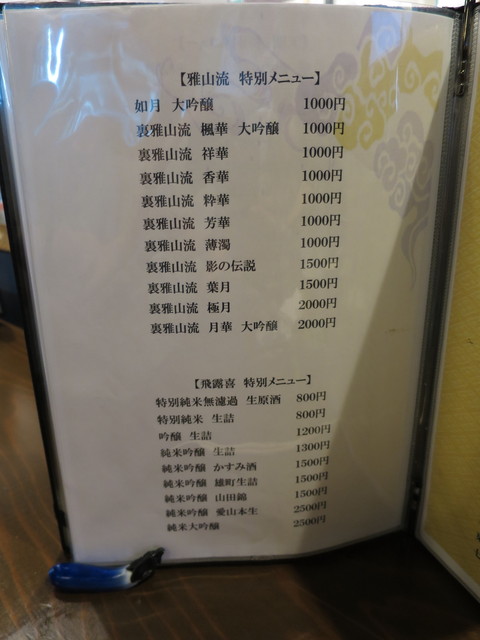 【雅山流 特別メニュー】
如月 大吟醸 1000円
裏雅山流 楓華 大吟醸 1000円
裏雅山流 祥華 1000円
裏雅山流 香華 1000円
裏雅山流 粋華 1000円
裏雅山流 芳華 1000円
裏雅山流 薄濁 1000円
裏雅山流 影の伝説 1500円
裏雅山流 葉月 1500円
裏雅山流 極月 2000円
裏雅山流 月華 大吟醸 2000円
【飛露喜 特別メニュー】
特別純米無濾過 生原酒 800円
特別純米 生詰 800円
吟醸 生詰 1200円
純米吟醸 生詰 1300円
純米吟醸 かすみ酒 1500円
純米吟醸 雄町生詰 1500円
純米吟醸 山田錦 1500円
純米吟醸 愛山本生 2500円
純米大吟醸 2500円